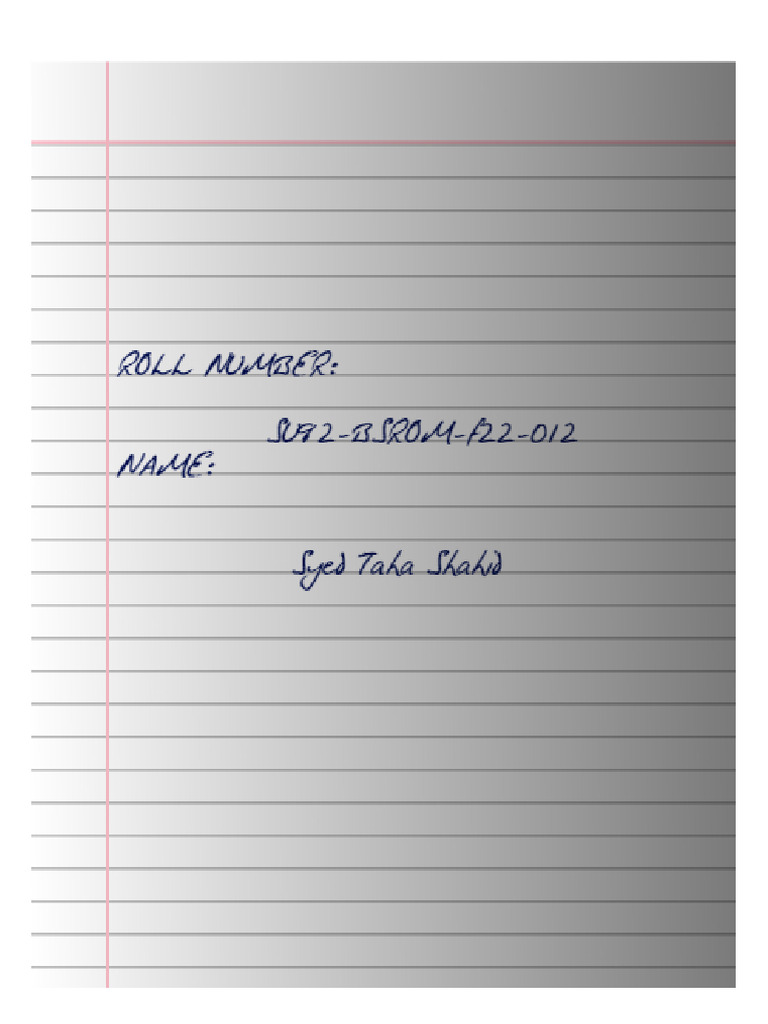 ROLL NUMBER:
SU92-BSROM-F22-012
NAME:
Syed Taha Shahid